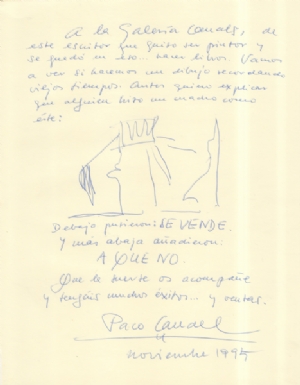 A la Galería Canals, de
este escritor que quiso ser pintor y
se quedó en esto... hacer libros. Vamos
a ver si hacemos un dibujo recordando
viejos tiempos. Antes quiero explicar
que alguien hizo un cuadro como
éste:
Debajo pusieron: SE VENDE.
Y más abajo añadieron:
A QUE NO.
Que la suerte os acompañe
y tengáis muchos éxitos... y ventas.
Paco Candel
noviembre